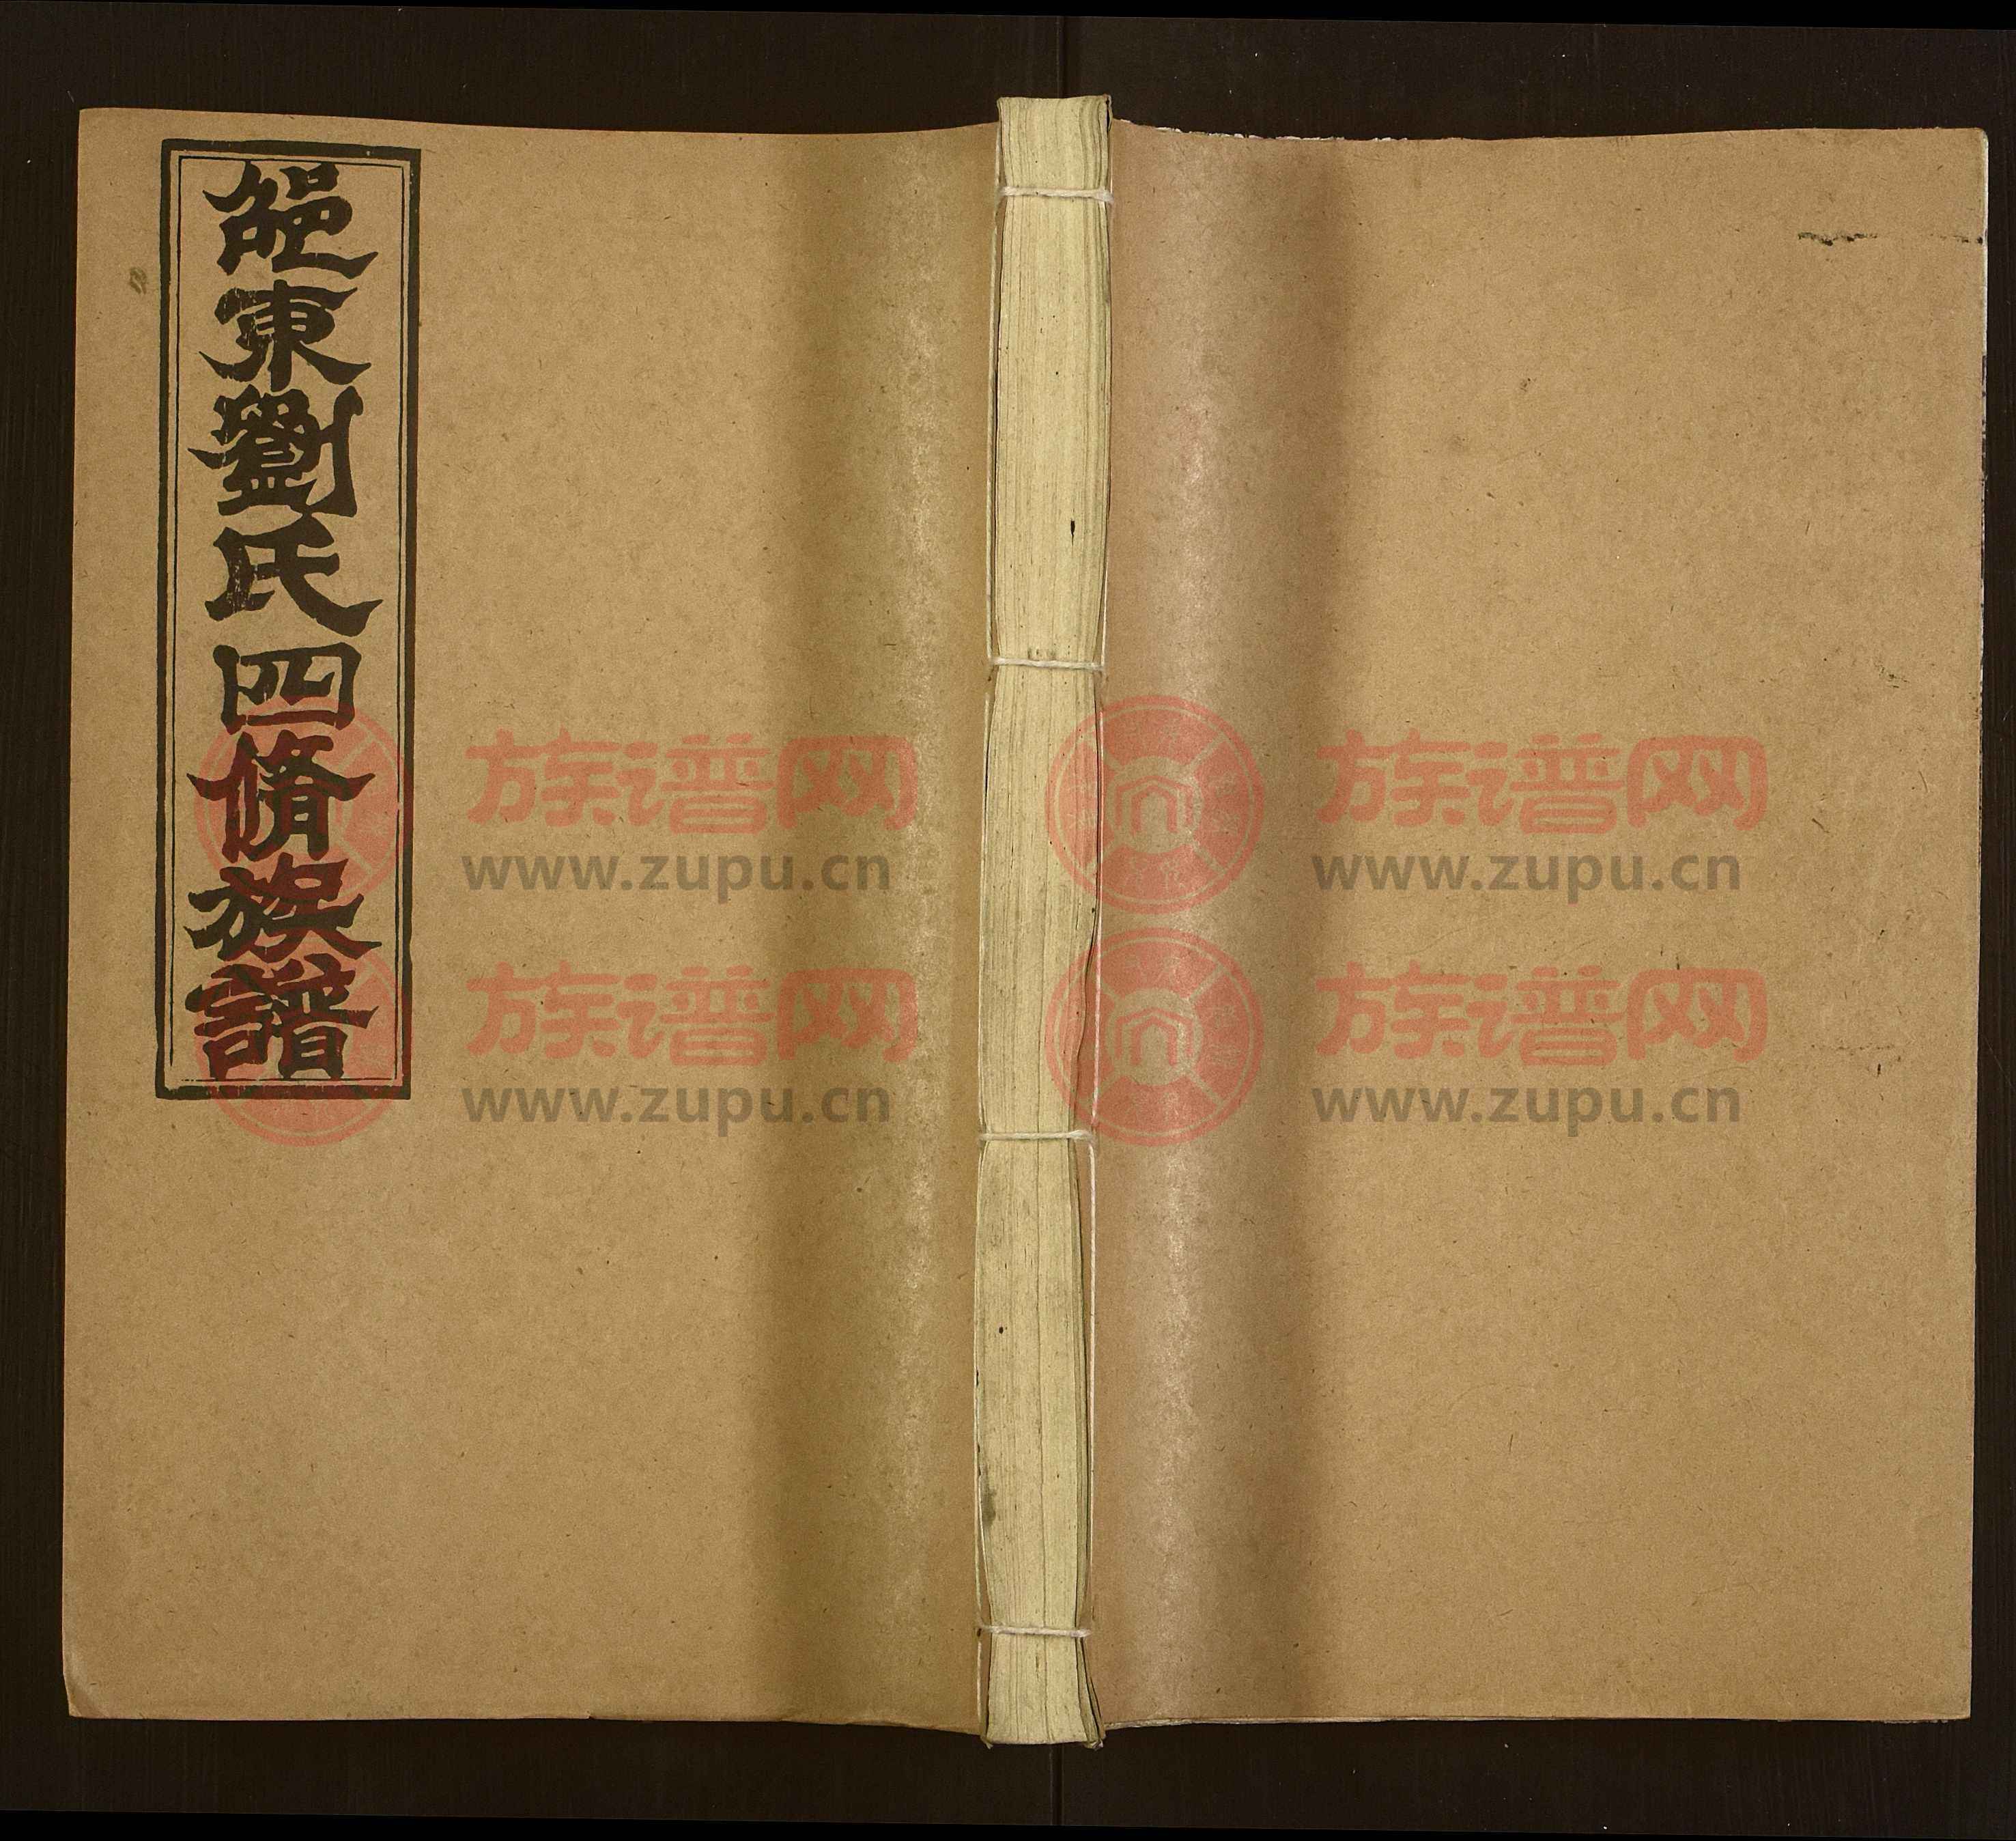 邵東劉氏四脩族譜
族谱网
www.zupu.cn
族谱网
www.zupu.cn
族谱网
www.zupu.cn
族谱网
www.zupu.cn